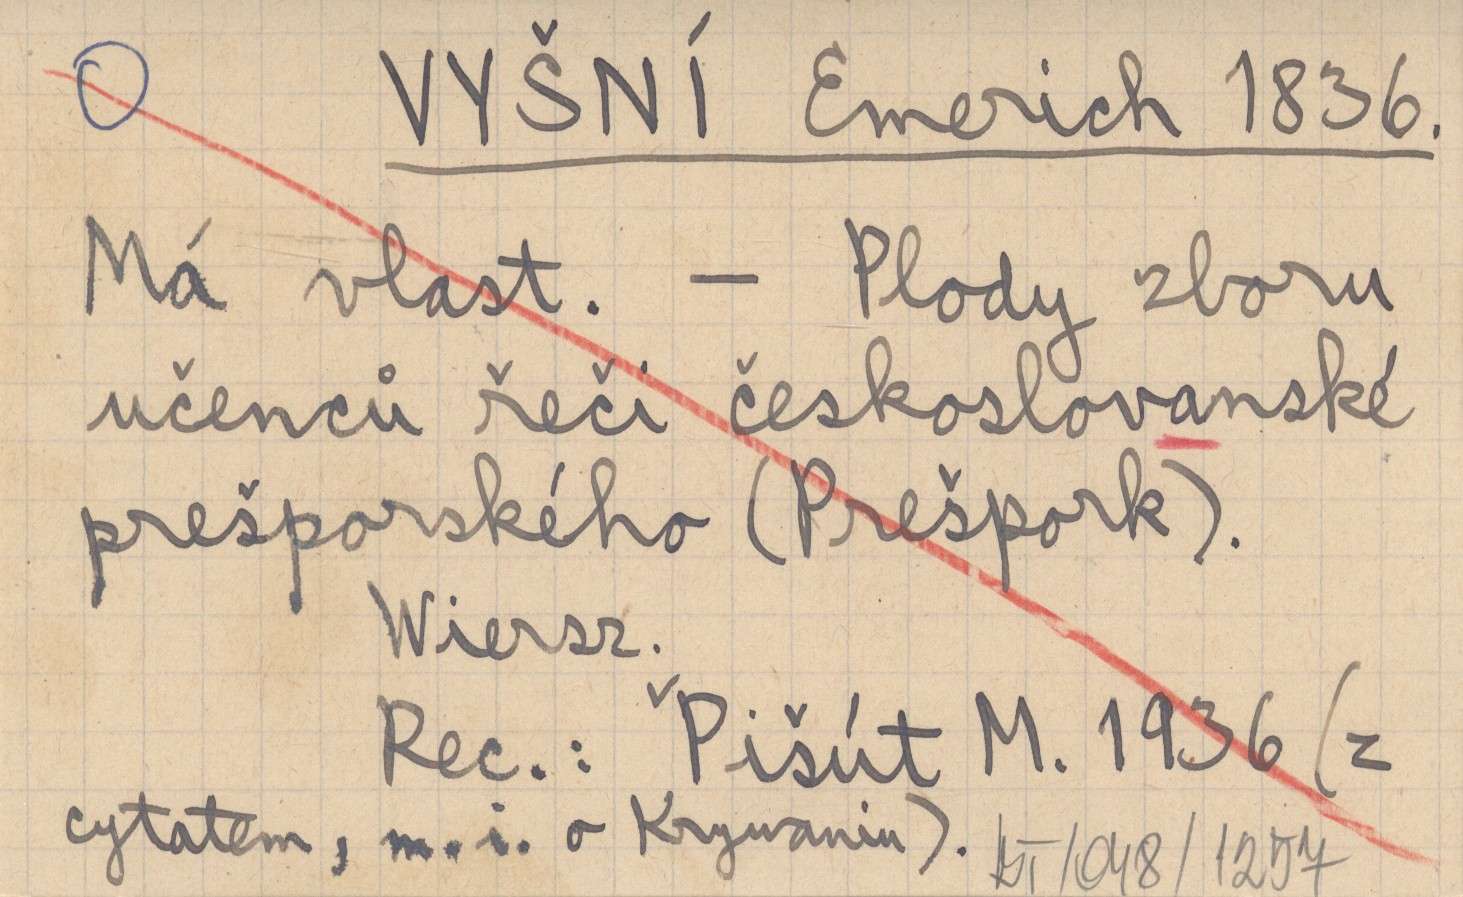 VYŠNÍ Emerich 1836.
Má vlast. — Plody zboru
učenců řeči českoslovanské
prešporského (Prešpork).
Wiersz.
Rec.: Pišút M. 1936 (z
cytatem, m.i. o Krywaniu).
/048/1257